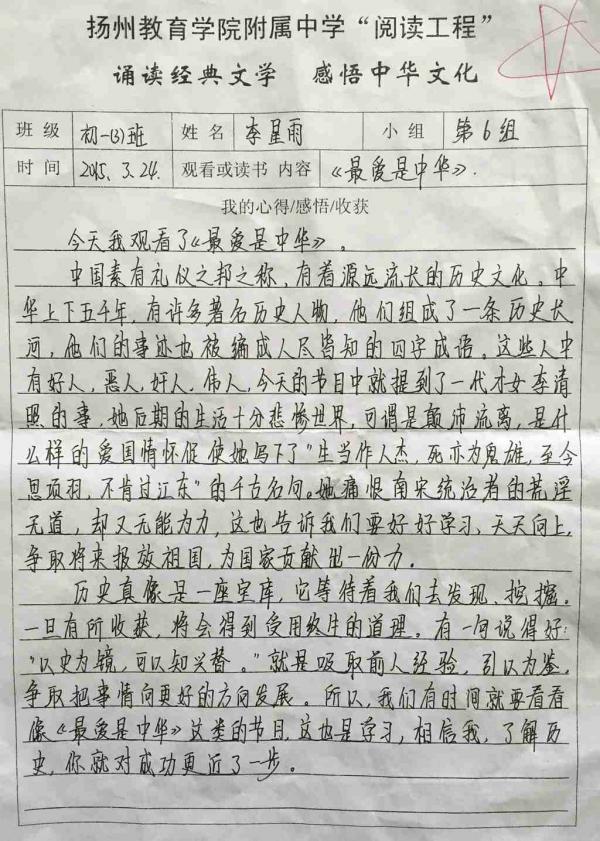 扬州教育学院附属中学“阅读工程”
诵读经典文学 感悟中华文化
班级 初一(3)班 姓名 李星雨 小组 第6组
时间 2015.3.24. 观看或读书 内容 《最爱是中华》.
我的心得/感悟/收获
今天我观看了《最爱是中华》。
中国素有礼仪之邦之称,有着源远流长的历史文化。中
华上下五千年,有许多著名历史人物,他们组成了一条历史长
河,他们的事迹也被编成人尽皆知的四字成语。这些人中
有好人,恶人,奸人,伟人,今天的节目中就提到了一代才女李清
照的事,她后期的生活十分悲惨世界,可谓是颠沛流离,是什
么样的爱国情怀促使她写下了“生当作人杰,死亦为鬼雄,至今
思项羽,不肯过江东”的千古名句。她痛恨南宋统治者的荒淫
无道,却又无能为力,这也告诉我们要好好学习、天天向上,
争取将来报效祖国,为国家贡献出一份力。
历史真像是一座宝库,它等待着我们去发现、挖掘。
一旦有所收获,将会得到受用终生的道理。有一句说得好:
“以史为镜,可以知兴替。”就是吸取前人经验,引以为鉴,
争取把事情向更好的方向发展。所以,我们有时间就要看看
像《最爱是中华》这类的节目,这也是学习,相信我,了解历
史,你就对成功更近了一步。